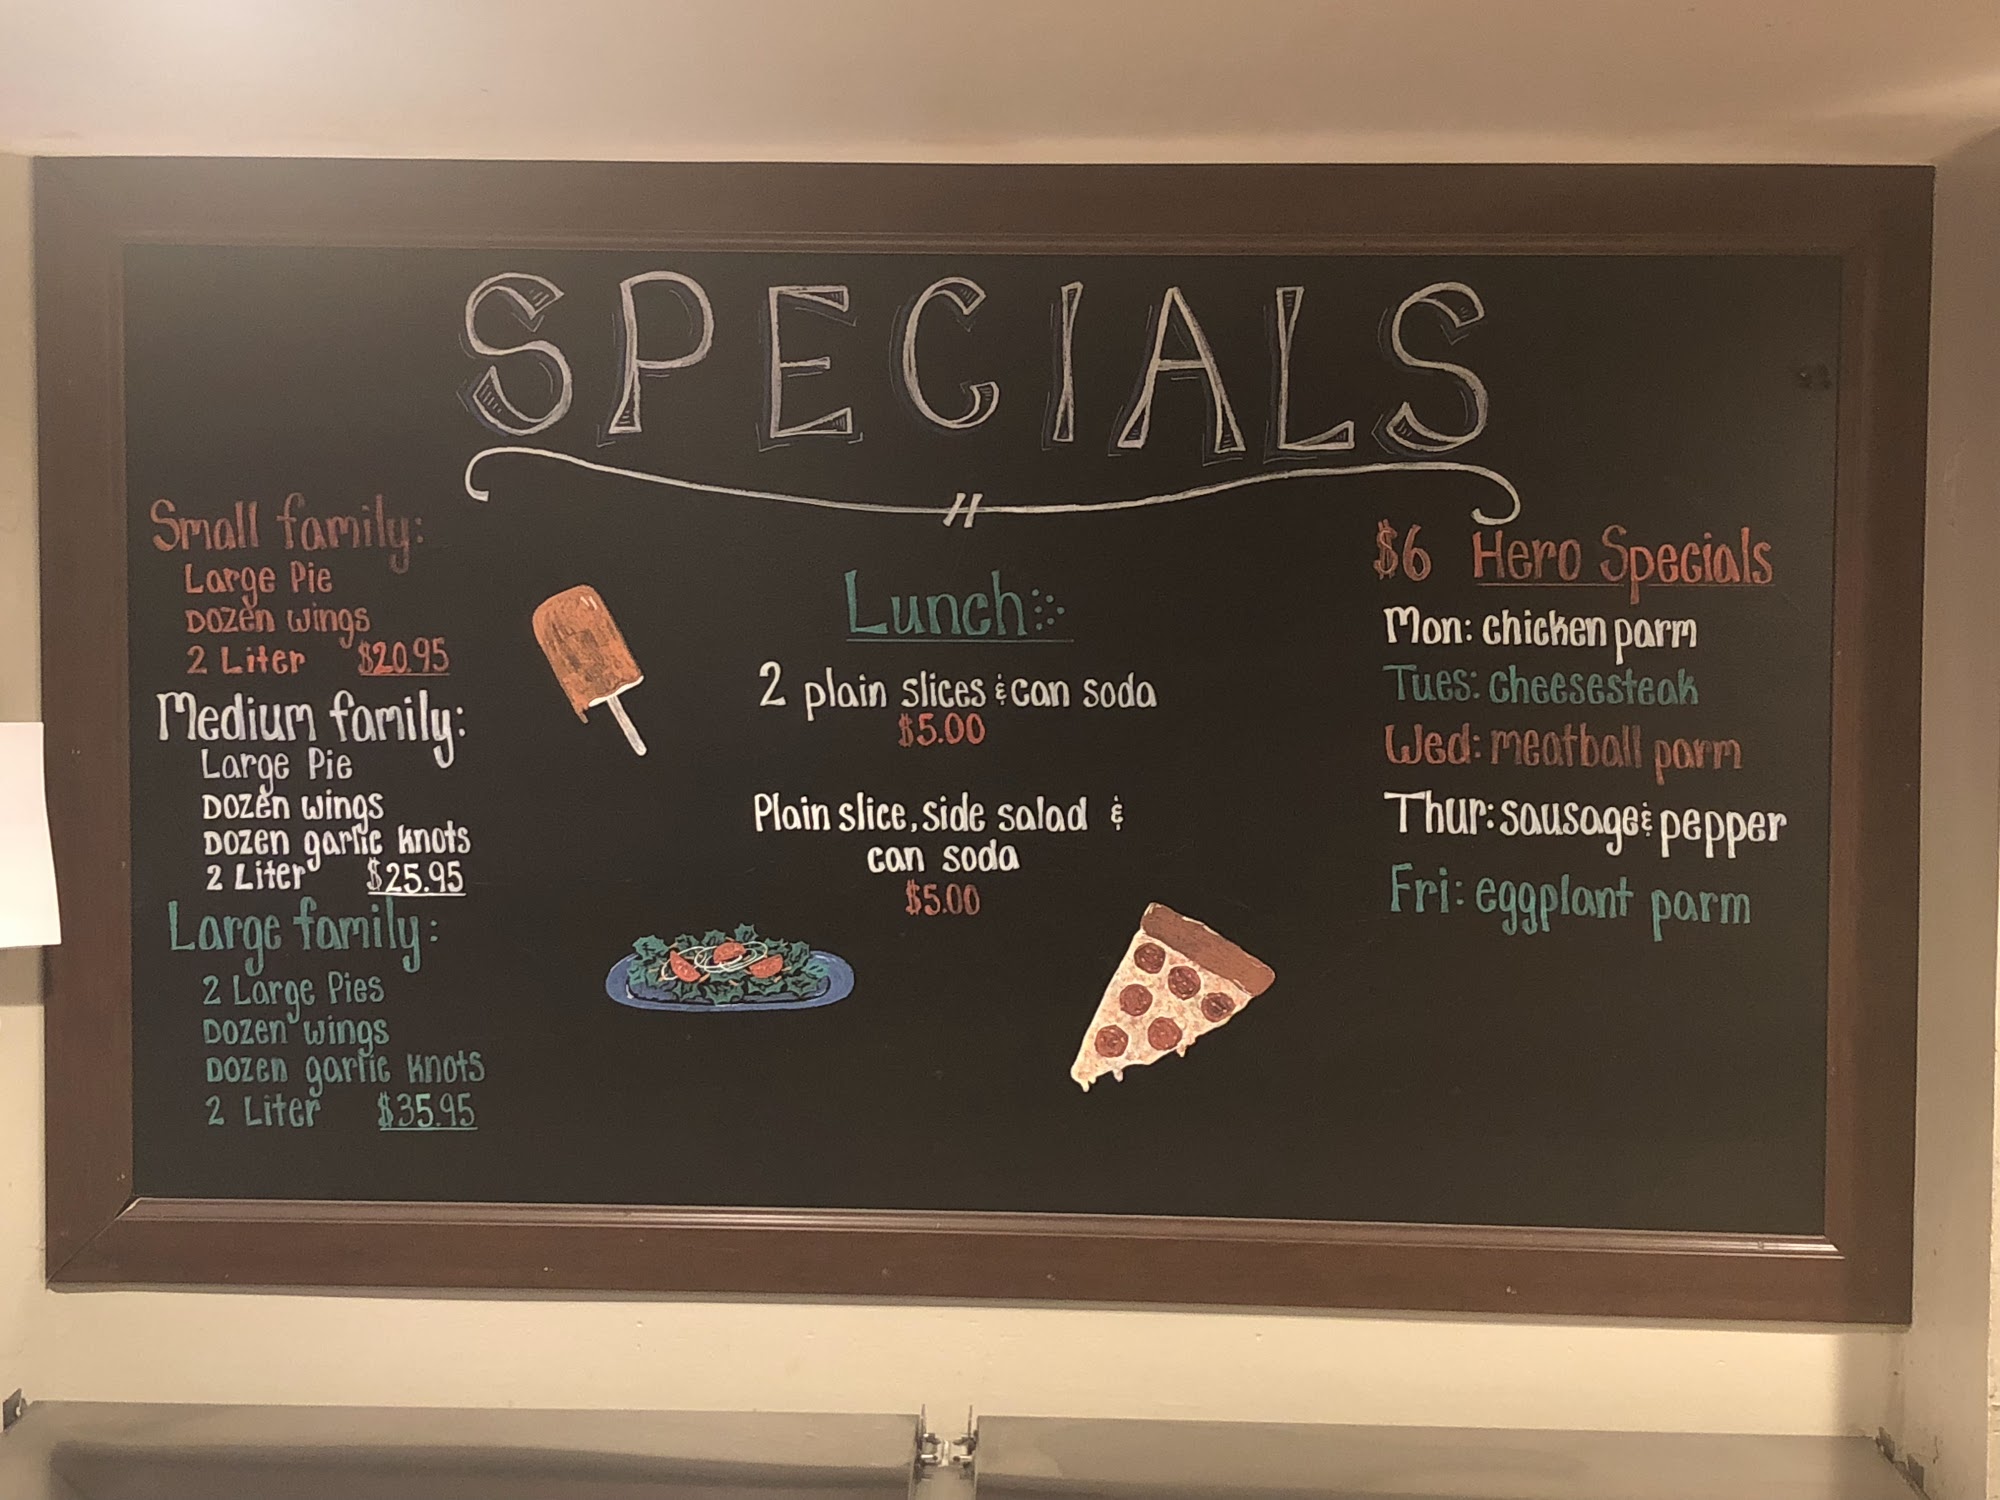 SPECIALS
Small family:
Large Pie
Dozen wings
2 Liter $20.95
Medium family:
Large Pie
Dozen wings
Dozen garlic knots
2 Liter $25.95
Large family:
2 Large Pies
Dozen wings
Dozen garlic knots
2 Liter $35.95
Lunch:
2 plain slices & can soda
$5.00
Plain slice, side salad &
can soda
$5.00
$6 Hero Specials
Mon: chicken parm
Tues: cheesesteak
Wed: meatball parm
Thur: sausage & pepper
Fri: eggplant parm